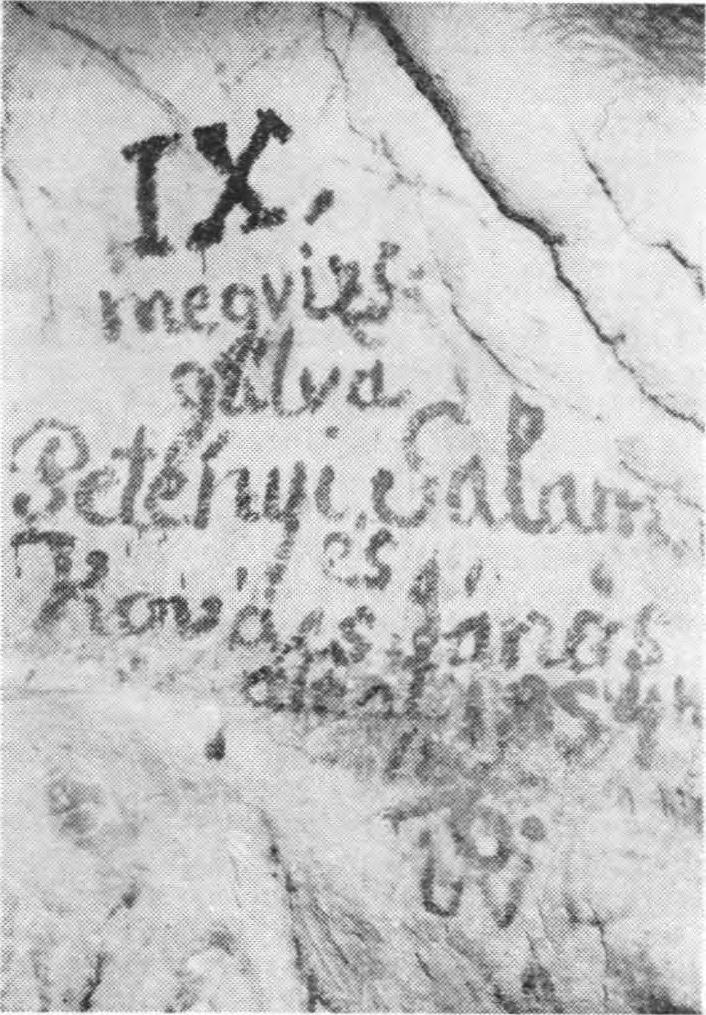 IX.
megvizs
gálva
Petényi Salam
és
Kovács János